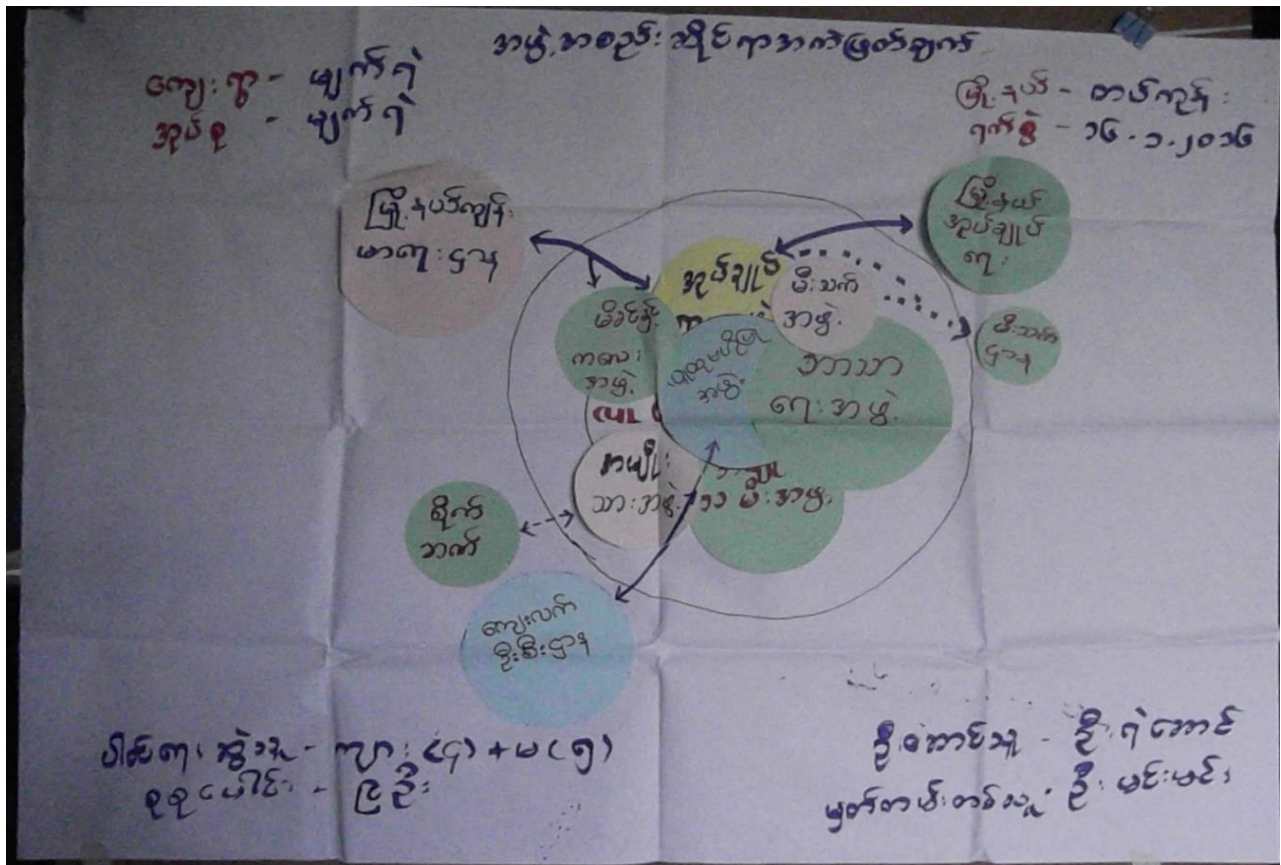 အဖွဲ့အစည်းဆိုင်ရာအကဲဖြတ်ချက်
ကျေးရွာ - မျက်ရဲ
အုပ်စု - မျက်ရဲ
မြို့နယ် - တပ်ကုန်း
ရက်စွဲ - ၁၆.၁.၂၀၁၆
မြို့နယ်ကျန်း
မာရေးဌာန
မြို့နယ်
အုပ်ချုပ်
ရေး
အုပ်ချုပ်
မီးသတ်
အဖွဲ့
မီးသတ်
ဌာန
မိခင်နှင့်
ကလေး
အဖွဲ့
အဖွဲ့
ဘာသာ
ရေးအဖွဲ့
အမျိုး
သားအဖွဲ့
သမီးအဖွဲ့
စိုက်
ဘဏ်
ကျေးလက်
ဦးစီးဌာန
ကျား (၄) + မ (၅)
စုစုပေါင်း - ၉ ဦး
ဦးဆောင်သူ - ဦးရဲအောင်
မှတ်တမ်းတင်သူ - ဦးမင်းမင်း